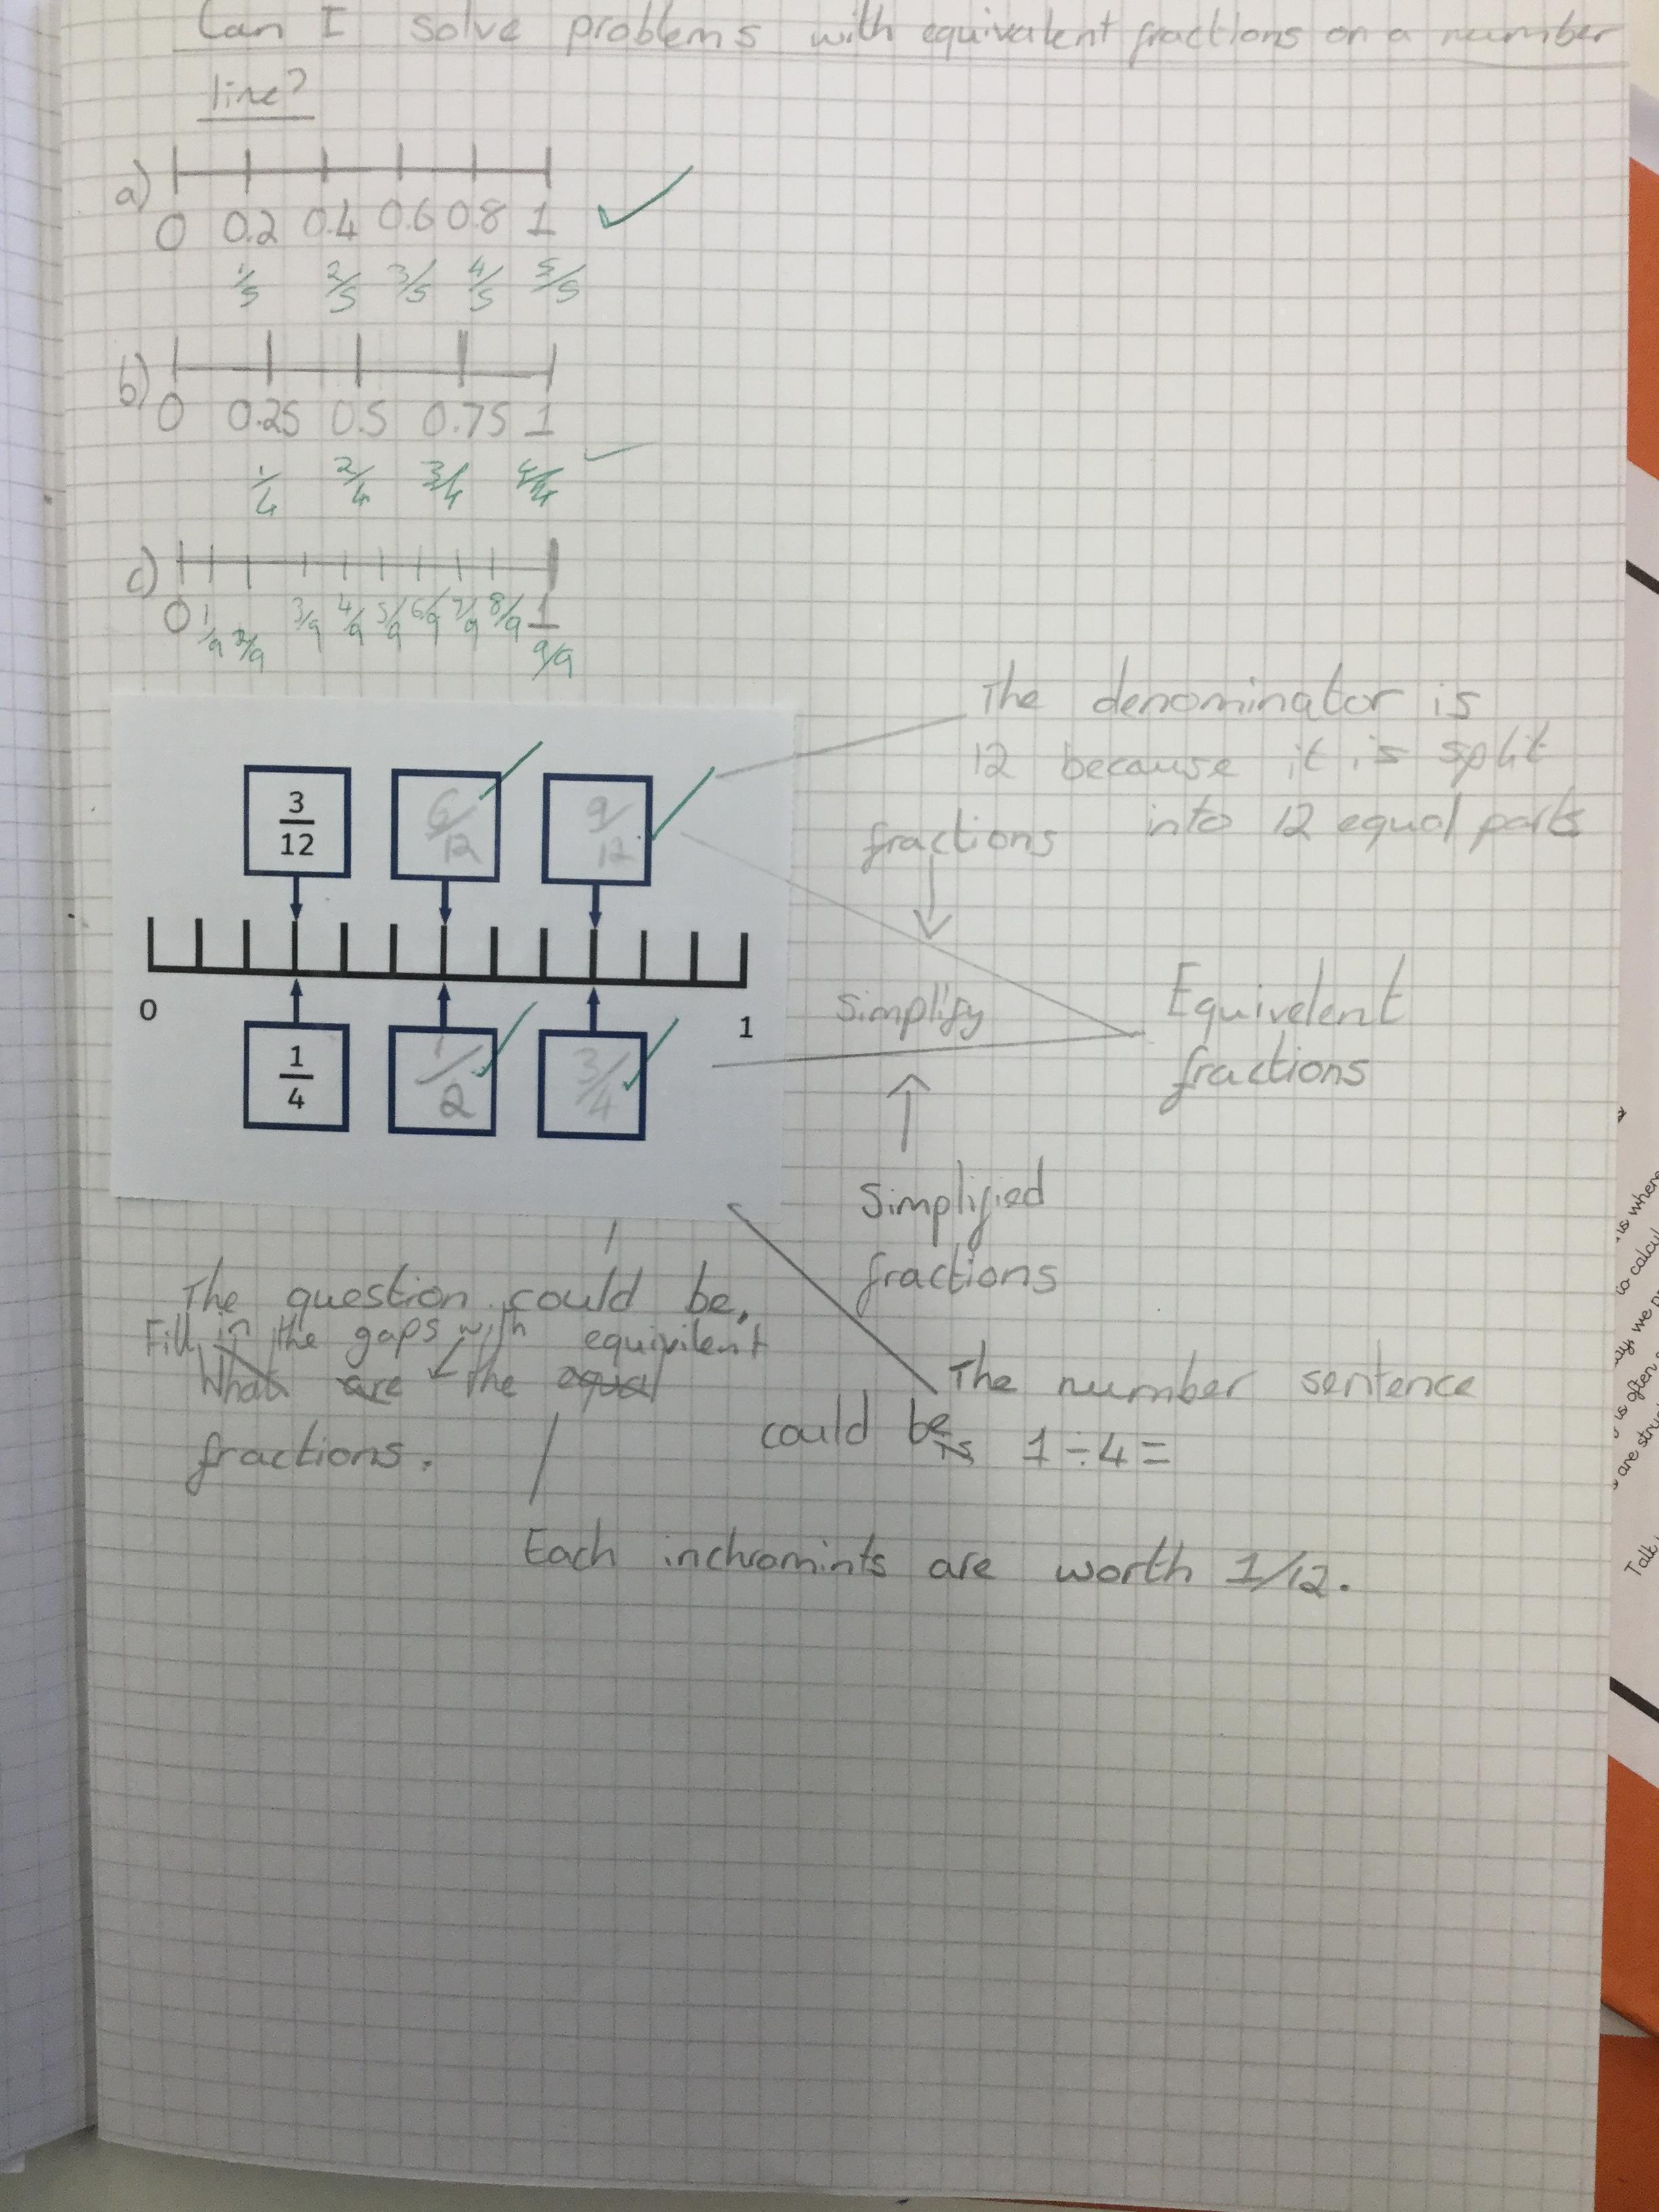 Can I solve problems with equivalent fractions on a number
line?
a)
0 0.2 0.4 0.6 0.8 1
1/5 2/5 3/5 4/5 5/5
b)
0 0.25 0.5 0.75 1
1/4 2/4 3/4 4/4
c)
0 1/9 2/9 3/9 4/9 5/9 6/9 7/9 8/9 1
9/9
The denominator is
12 because it is split
into 12 equal parts
3/12 6/12 9/12
fractions
0 1
Simplify
1/4 1/2 3/4
Equivelent
fractions
Simplified
fractions
The question could be,
Fill in the gaps with equivilent
What are the equal
fractions.
The number sentence
could be is 1÷4=
Each inchromints are worth 1/12.
is where
to calcul
is often
are stru
Talk